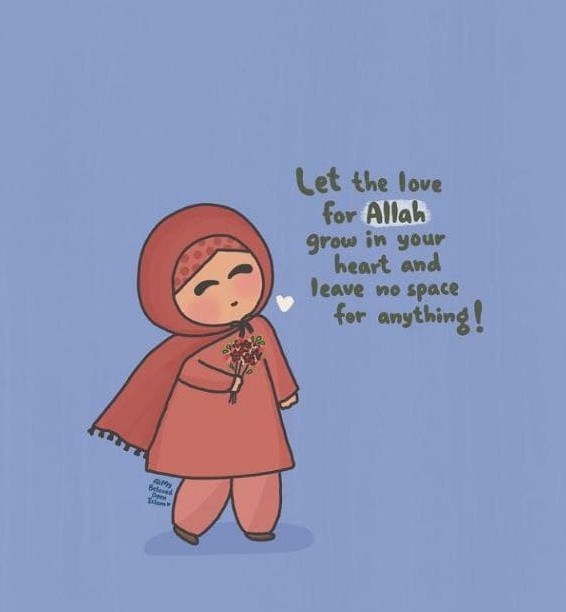 Let the love
for Allah
grow in your
heart and
leave no space
for anything!
@My
Beloved
Deen
Islam